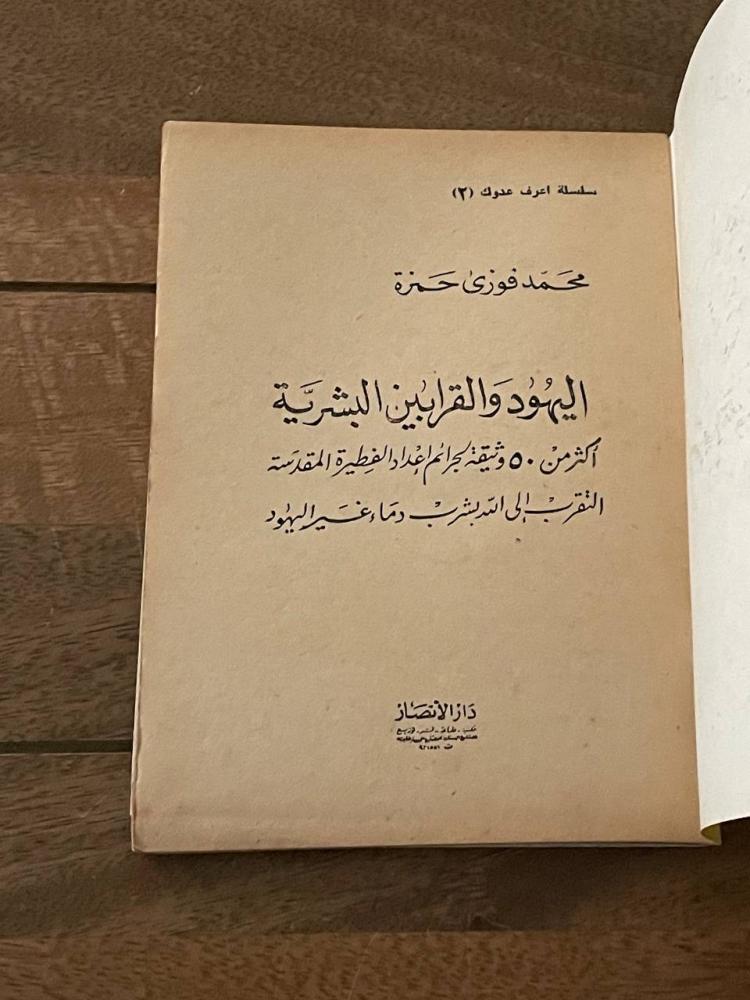 سلسلة اعرف عدوك (٢)
محمد فوزى حمزة
اليهود والقرابين البشرية
أكثر من ٥٠ وثيقة لجرائم إعداد الفطيرة المقدسة
التقرب إلى الله بشرب دماء غير اليهود
دار الأنصار